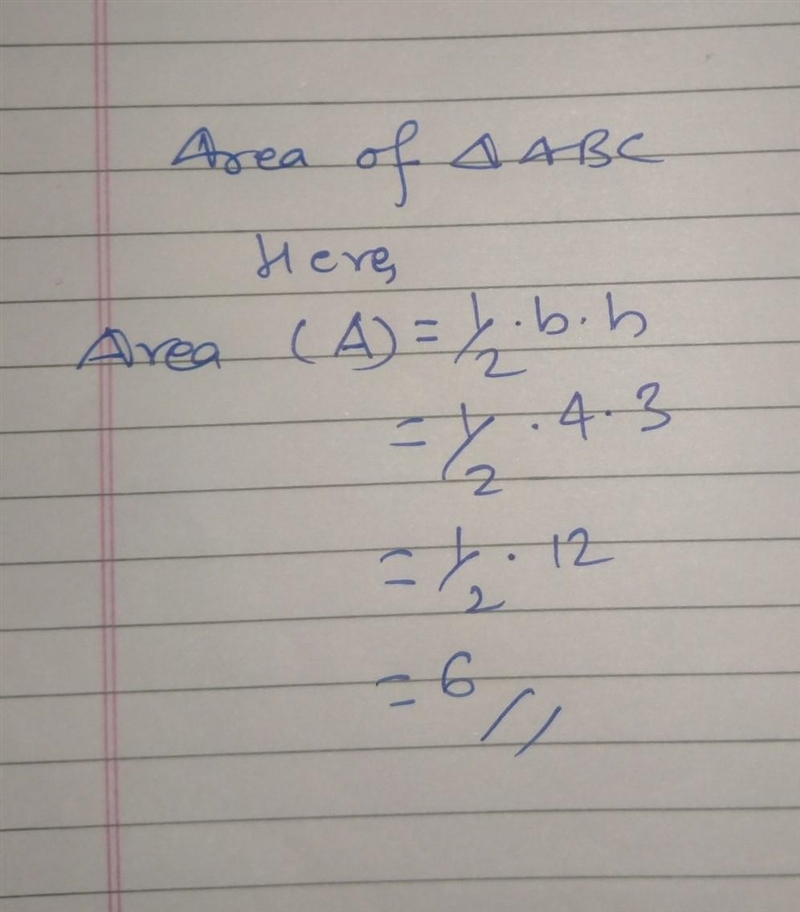 Area of △ABC
Here,
Area (A) = 1/2 . b . h
= 1/2 . 4 . 3
= 1/2 . 12
= 6 //